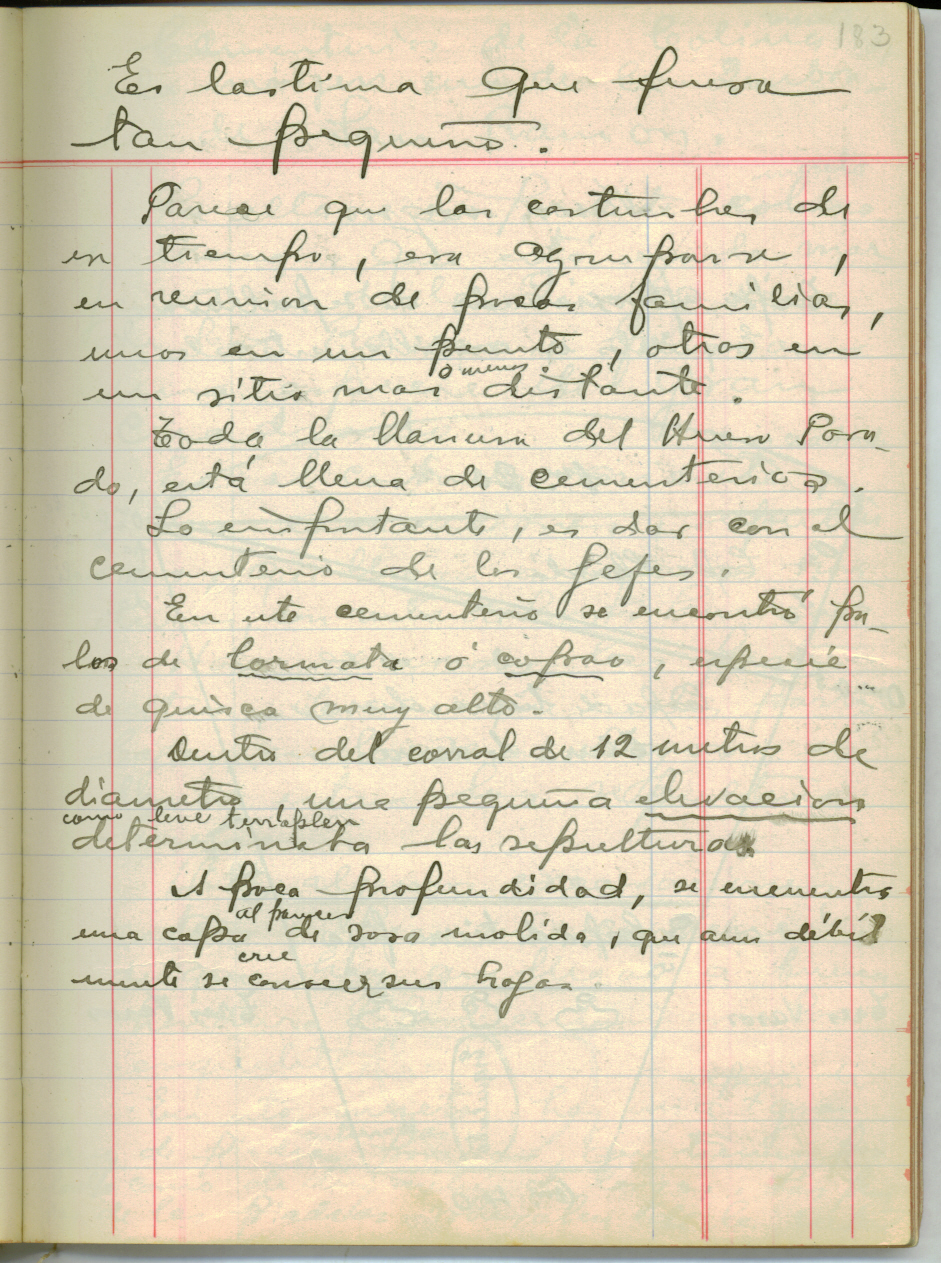 183
Es lastima que fuera
tan pequeño.
Parece que las costumbres de
ese tiempo, era agruparse,
en reunion de pocas familias,
unos en un punto, otros en
un sitio mas o menos distante.
Toda la llanura del Hueso Para-
do, está llena de cementerios.
Lo importante, es dar con el
cementerio de los Gefes.
En este cementerio se encontró pa-
los de tormata ó copao, especie
de quisca muy alto.
Dentro del corral de 12 metros de
diametro, una pequeña elevacion
como leve terraplen
determinata las sepulturas
A poca profundidad, se encuentra
una capa al parecer de rosa molida, que aun débil
mente se cree conocer sus hojas.